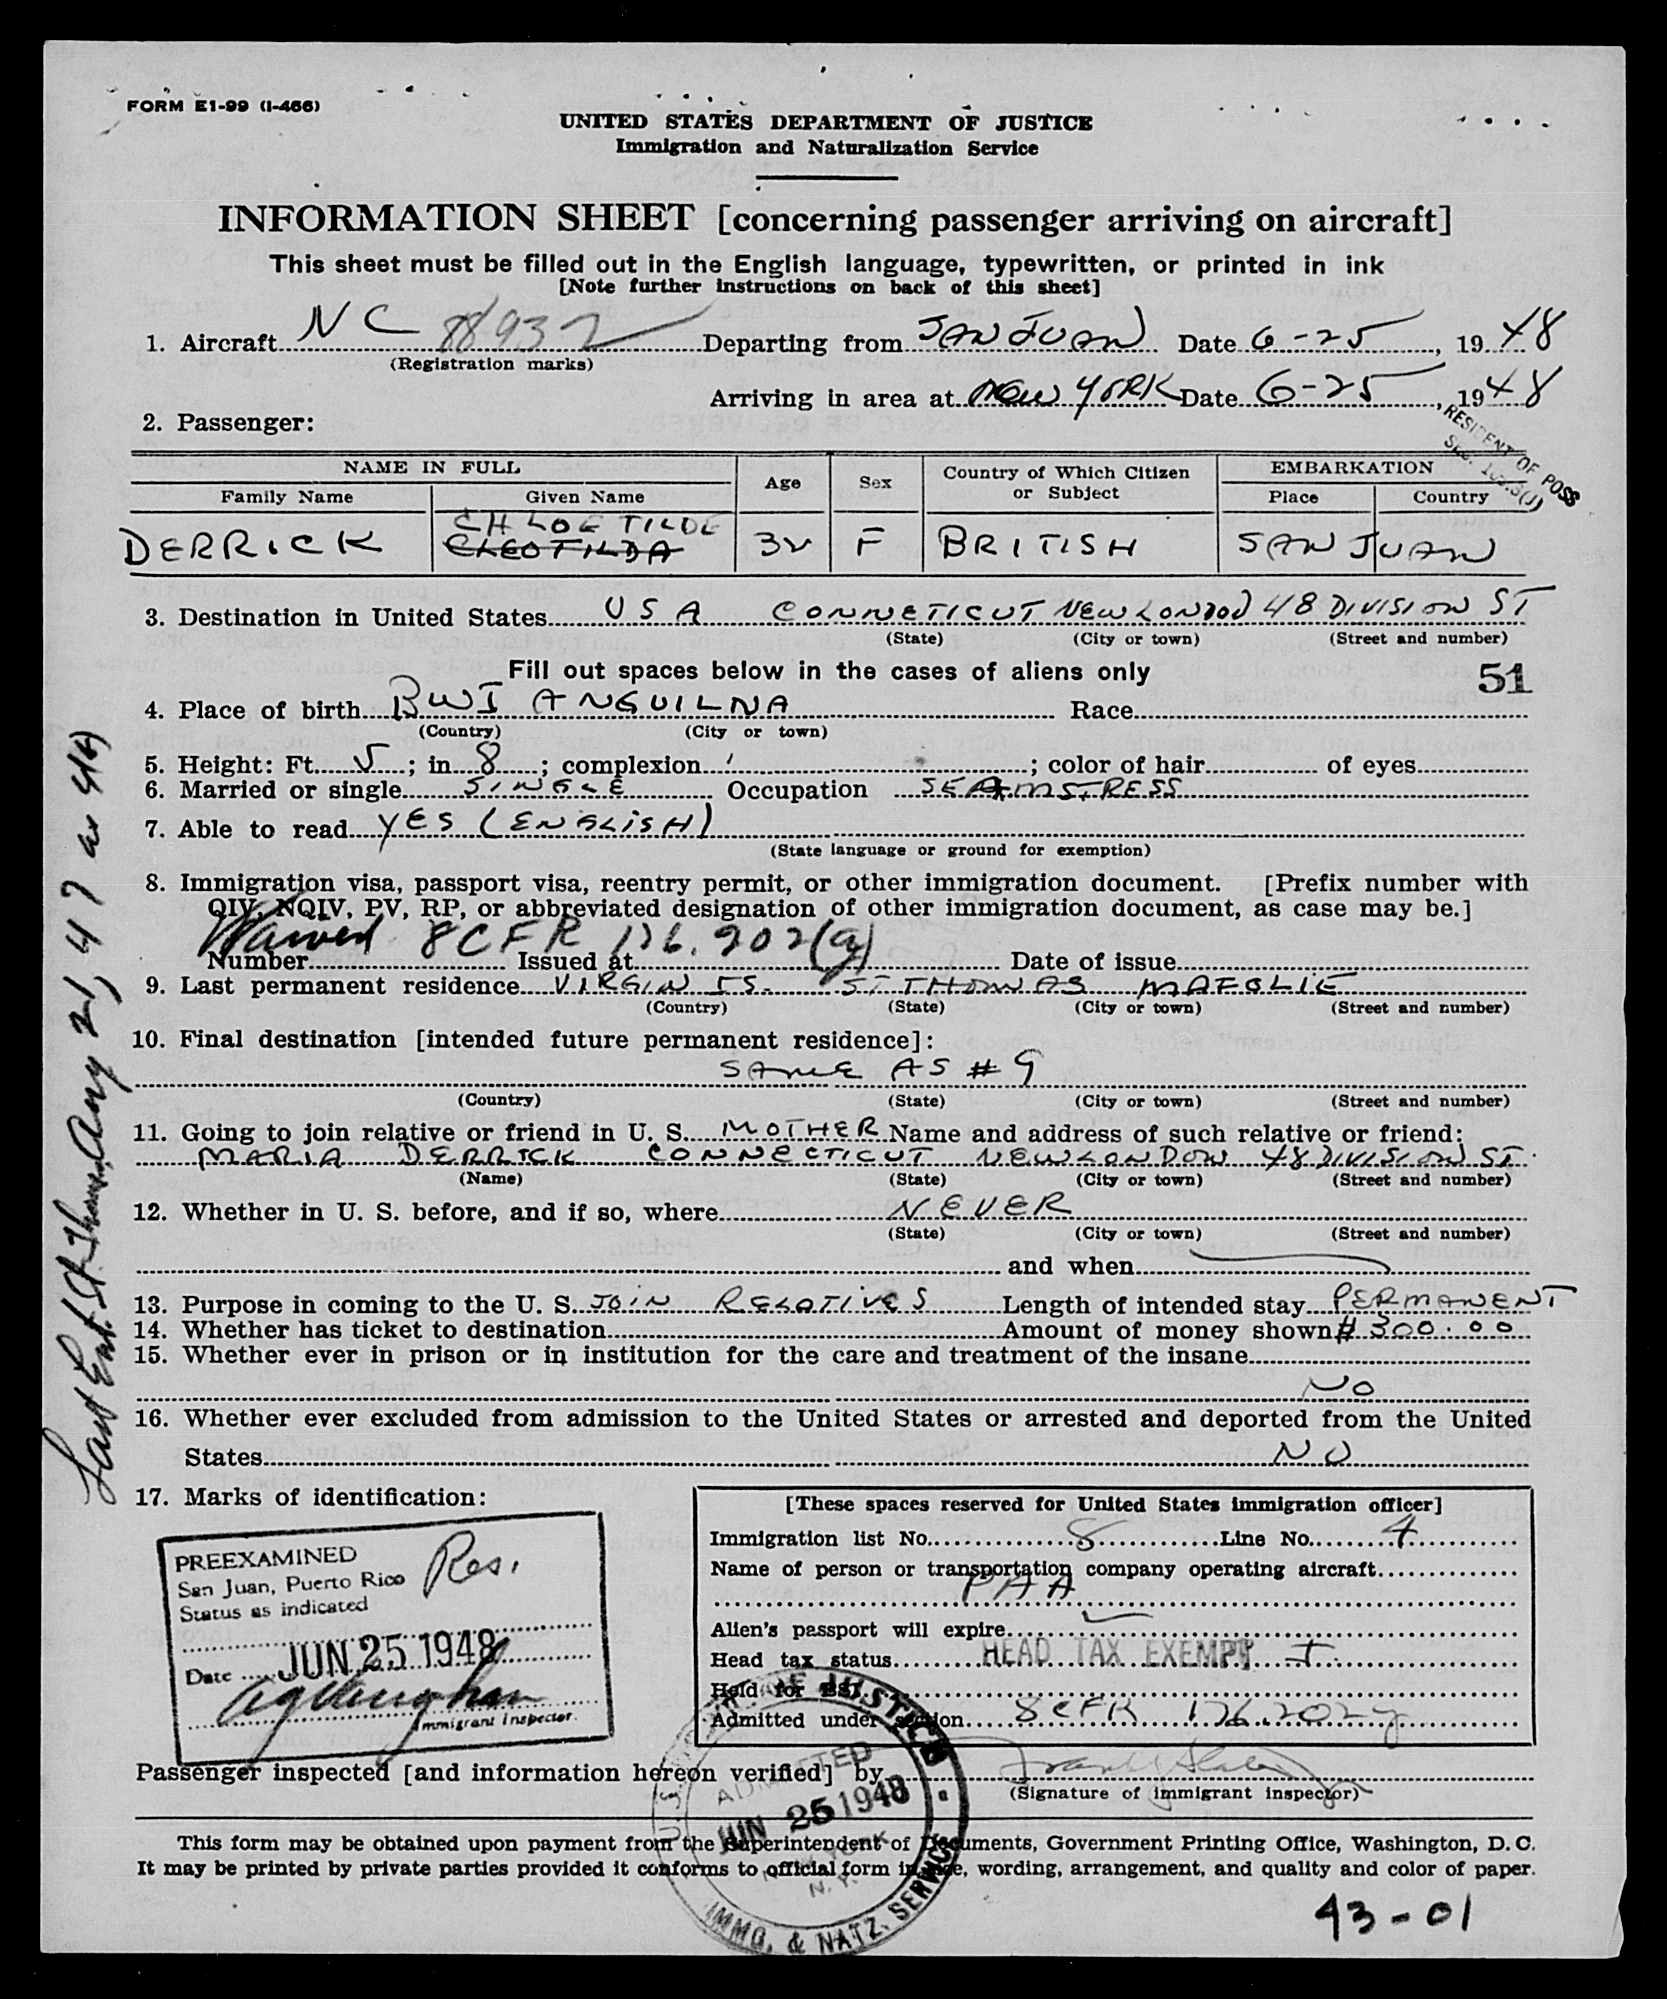 FORM E1-99 (I-466)
UNITED STATES DEPARTMENT OF JUSTICE
Immigration and Naturalization Service
INFORMATION SHEET [concerning passenger arriving on aircraft]
This sheet must be filled out in the English language, typewritten, or printed in ink
[Note further instructions on back of this sheet]
1. Aircraft NC 88932 Departing from SAN JUAN Date 6-25, 1948
(Registration marks)
Arriving in area at NEW YORK Date 6-25, 1948
RESIDENT OF POSS
2. Passenger:
NAME IN FULL Age Sex Country of Which Citizen or Subject EMBARKATION
Family Name Given Name Place Country
CHLOETILDE
DERRICK CLEOTILDA 32 F BRITISH SAN JUAN
3. Destination in United States USA CONNETICUT NEW LONDOD 48 DIVISION ST
(State) (City or town) (Street and number)
Fill out spaces below in the cases of aliens only 51
4. Place of birth BWI ANGUILNA Race
(Country) (City or town)
5. Height: Ft. 5; in. 8; complexion ; color of hair of eyes
6. Married or single SINGLE Occupation SEAMSTRESS
7. Able to read YES (ENGLISH)
(State language or ground for exemption)
8. Immigration visa, passport visa, reentry permit, or other immigration document. [Prefix number with
QIV, NQIV, PV, RP, or abbreviated designation of other immigration document, as case may be.]
Waived 8 CFR 176.202(g)
Number Issued at Date of issue
9. Last permanent residence VIRGIN IS. ST THOMAS MAFOLIE
(Country) (State) (City or town) (Street and number)
10. Final destination [intended future permanent residence]:
SAME AS # 9
(Country) (State) (City or town) (Street and number)
11. Going to join relative or friend in U. S. MOTHER Name and address of such relative or friend:
MARIA DERRICK CONNECTICUT NEW LONDON 48 DIVISION ST.
(Name) (State) (City or town) (Street and number)
12. Whether in U. S. before, and if so, where NEVER
(State) (City or town) (Street and number)
and when
13. Purpose in coming to the U. S. JOIN RELATIVES Length of intended stay PERMANENT
14. Whether has ticket to destination Amount of money shown # 300.00
15. Whether ever in prison or in institution for the care and treatment of the insane
NO
16. Whether ever excluded from admission to the United States or arrested and deported from the United
States NO
17. Marks of identification:
Last Ent. St. Thomas, Aug 21, 47 as 4(b)
PREEXAMINED Res.
San Juan, Puerto Rico
Status as indicated
Date JUN 25 1948
Immigrant Inspector
[These spaces reserved for United States immigration officer]
Immigration list No. 8 Line No. 4
Name of person or transportation company operating aircraft
PAA
Alien's passport will expire
Head tax status HEAD TAX EXEMPT
Held for BSI
Admitted under section 8 CFR 176.202g
Passenger inspected [and information hereon verified] by
(Signature of immigrant inspector)
U.S. DEPT. OF JUSTICE
ADMITTED
JUN 25 1948
NEW YORK
N. Y.
IMMG. & NATZ. SERVICE
This form may be obtained upon payment from the Superintendent of Documents, Government Printing Office, Washington, D. C.
It may be printed by private parties provided it conforms to official form in size, wording, arrangement, and quality and color of paper.
43-01